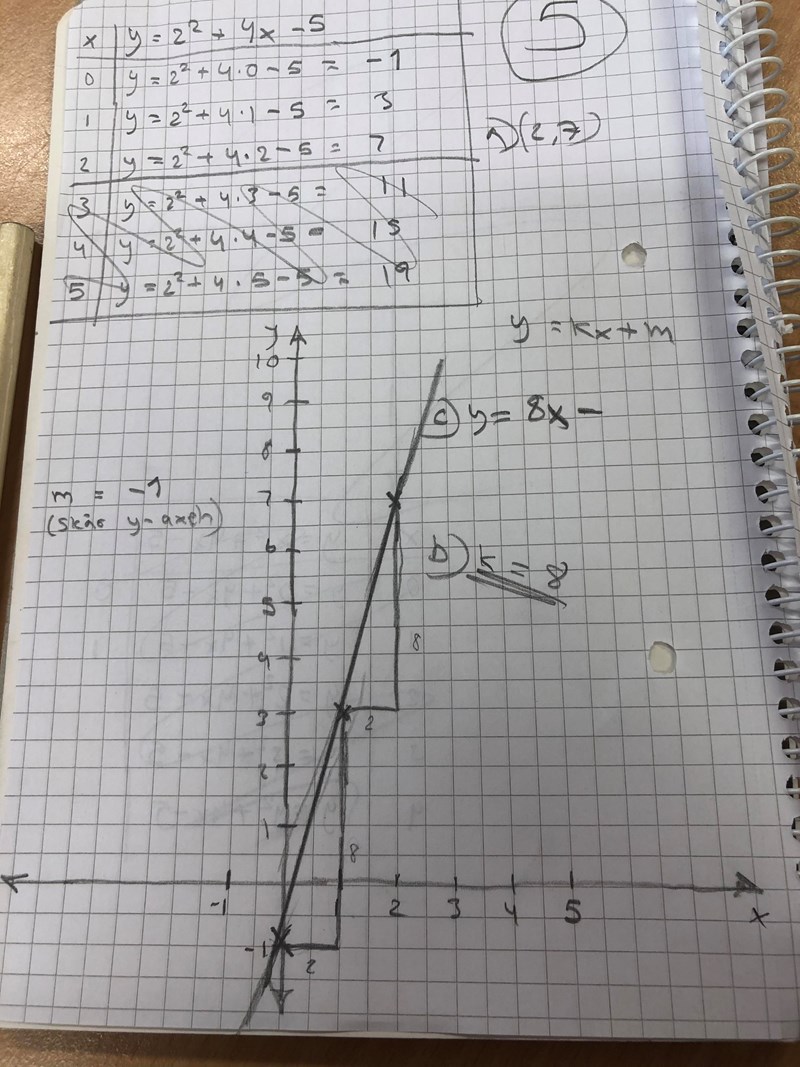 x y = 2² + 4x - 5
0 y = 2² + 4·0 - 5 = -1
1 y = 2² + 4·1 - 5 = 3
2 y = 2² + 4·2 - 5 = 7
3 y = 2² + 4·3 - 5 = 11
4 y = 2² + 4·4 - 5 = 15
5 y = 2² + 4·5 - 5 = 19
5
A) (2,7)
y = kx + m
y
10
9
c) y = 8x -
8
m = -1
7
(skär y-axeln)
6
b) k = 8
5
8
4
3
2
2
1
8
-1 2 3 4 5 x
-1
2